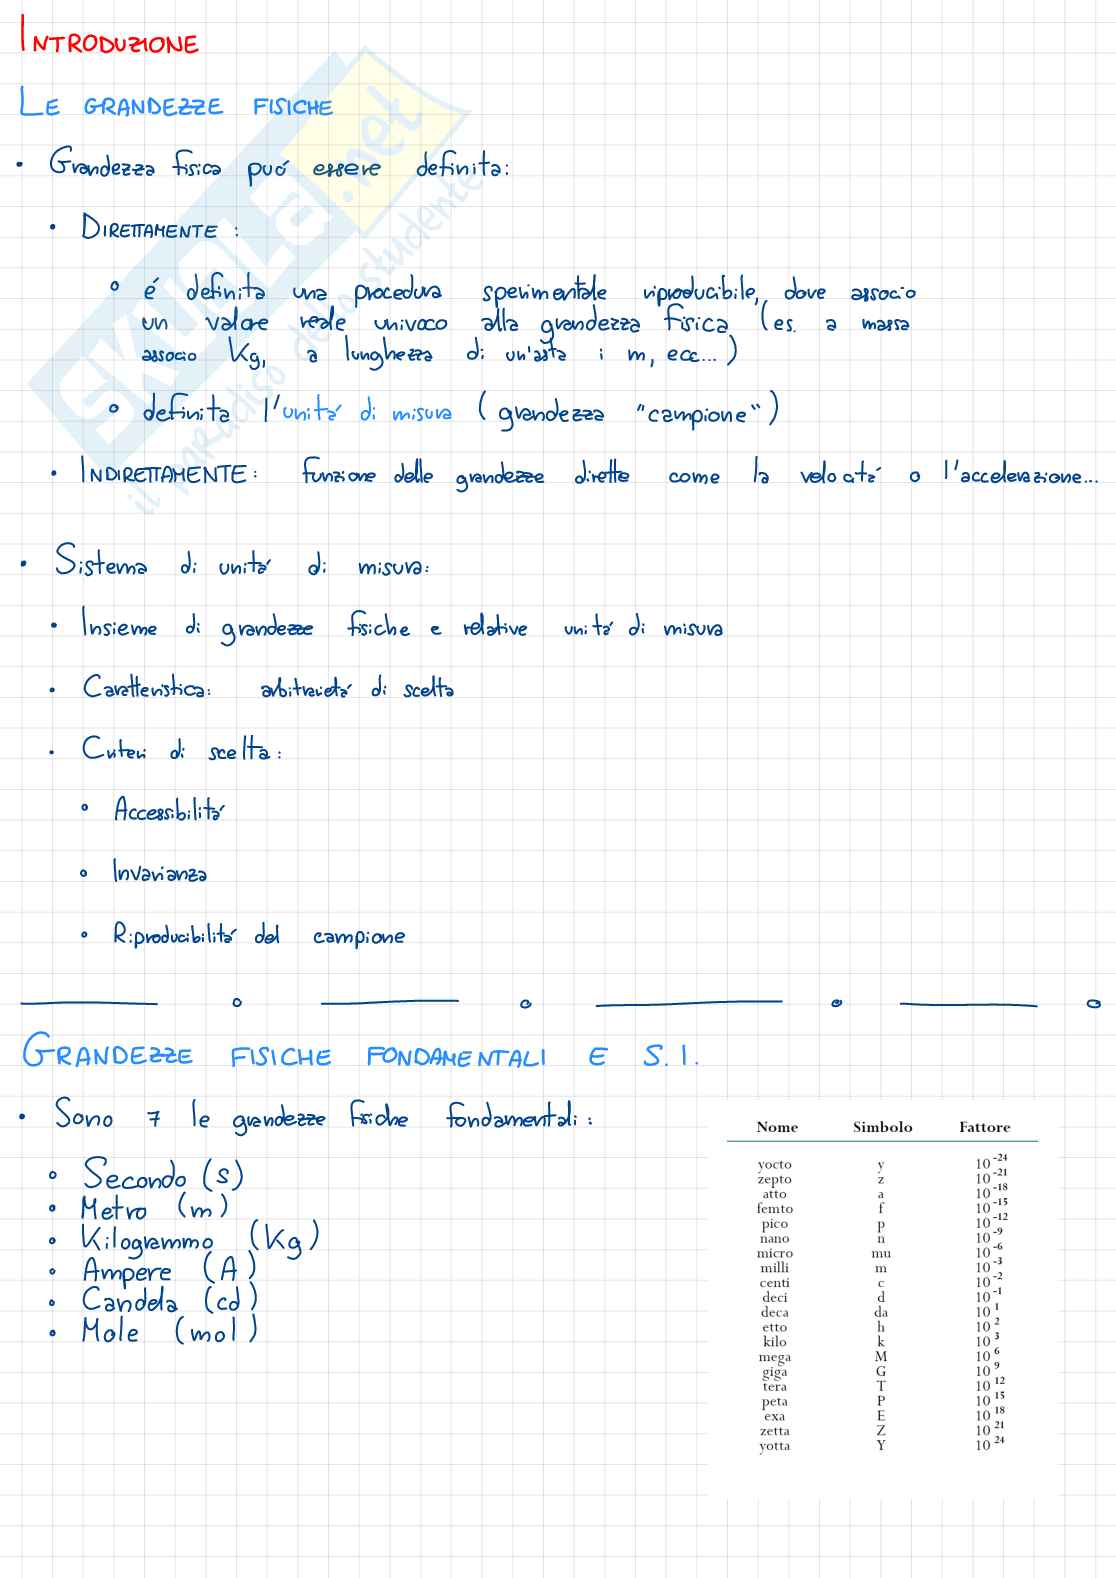 INTRODUZIONE
LE GRANDEZZE FISICHE
• Grandezza fisica puó essere definita:
• DIRETTAMENTE :
é definita una procedura sperimentale riproducibile, dove associo
un valore reale univoco alla grandezza fisica (es. a massa
associo Kg, a lunghezza di un'asta i m, ecc...)
definita l'unitá di misura (grandezza "campione")
• INDIRETTAMENTE: funzione delle grandezze dirette come la velocitá o l'accelerazione...
• Sistema di unitá di misura:
• Insieme di grandezze fisiche e relative unitá di misura
• Caratteristica: arbitrarietá di scelta
• Criteri di scelta:
Accessibilitá
Invarianza
Riproducibilitá del campione
GRANDEZZE FISICHE FONDAMENTALI E S.I.
• Sono 7 le grandezze fisiche fondamentali:
Secondo (s)
Metro (m)
Kilogrammo (Kg)
Ampere (A)
Candela (cd)
Mole (mol)
Nome Simbolo Fattore
yocto y 10^-24
zepto z 10^-21
atto a 10^-18
femto f 10^-15
pico p 10^-12
nano n 10^-9
micro mu 10^-6
milli m 10^-3
centi c 10^-2
deci d 10^-1
deca da 10^1
etto h 10^2
kilo k 10^3
mega M 10^6
giga G 10^9
tera T 10^12
peta P 10^15
exa E 10^18
zetta Z 10^21
yotta Y 10^24
SKUOLA.net
il paradiso dello studente